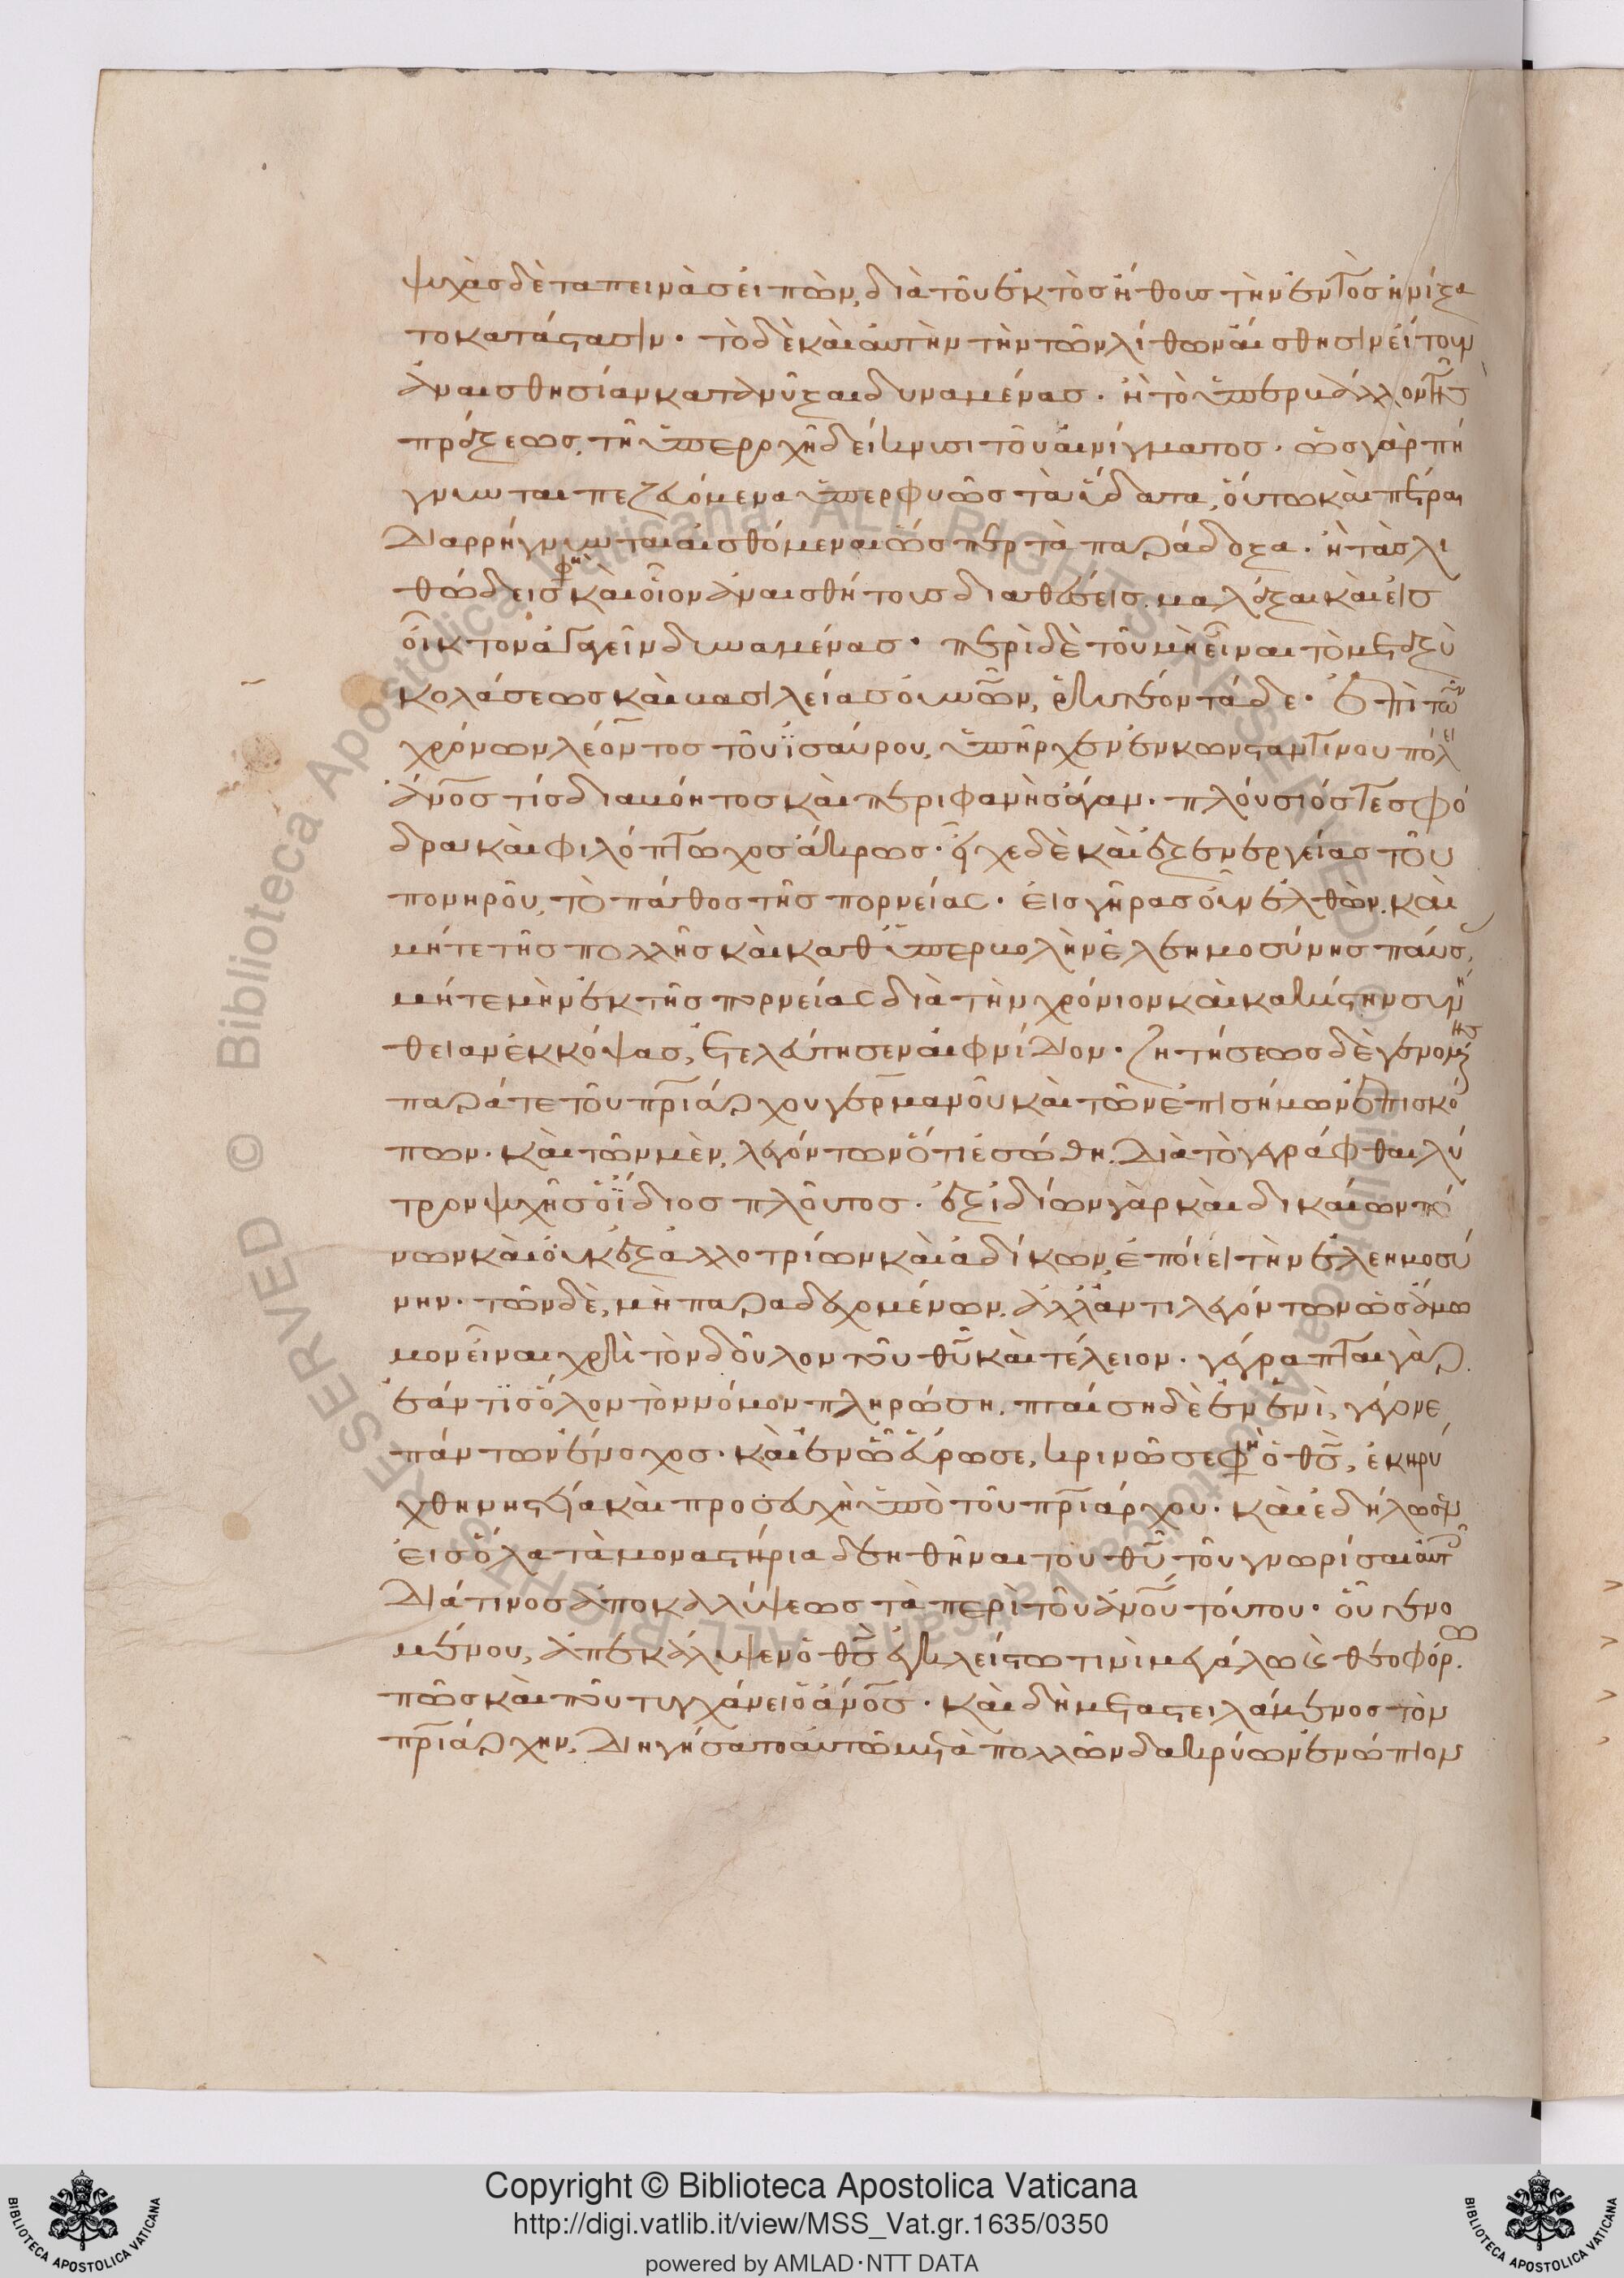 ψυχὰς δὲ ταπεινὰς εἰπὼν, διὰ τοῦ ἐκτὸς ἤθους τὴν ἐντὸς ἠνίξα
το κατάστασιν. τὸ δὲ καὶ αὐτὴν τὴν τῶν λίθων αἴσθησιν εἴτουν
ἀναισθησίαν κατανύξαι δυναμένας. ἢ τὸ ὑπερβάλλον τῆς
πράξεως, τῆ ὑπεροχῆ δείκνυσι τοῦ αἰνίγματος. ὡς γὰρ πή
γνυνται πεζευόμενα ὑπερφυῶς τὰ ὕδατα, οὕτω καὶ πέτραι
διαρρήγνυνται αἰσθόμεναι ὥσπερ τὰ παράδοξα. ἢ τὰς λι
θώδεις φη καὶ οἷον ἀναισθήτους διαθέσεις μαλάξαι καὶ εἰς
οἶκτον ἀγαγεῖν δυναμένας. περὶ δὲ τοῦ μὴ εἶναι τὸ μεταξὺ
κολάσεως καὶ βασιλείας οὐρανῶν, ἀκουστέον τάδε. ἐπὶ τῶν
χρόνων λέοντος τοῦ ἰσαύρου, ὑπῆρχεν ἐν κωνσταντίνου πόλει
ἄνος τίς διαβόητος καὶ περιφανὴς ἄγαν. πλούσιός τε σφό
δρα καὶ φιλόπτωχος ἄκρως. εἶχε δὲ καὶ ἐξ ἐνεργείας τοῦ
πονηροῦ, τὸ πάθος τῆς πορνείας. εἰς γῆρας οὖν ἐλθὼν, καὶ
μήτε τῆς πολλῆς καὶ καθ ὑπερβολὴν ἐλεημοσύνης παυσ
μήτε μὴν ἐκ τῆς πορνείας διὰ τὴν χρόνιον καὶ κακίστην συνή
θειαν ἐκκόψας, ἐτελεύτησεν αἰφνίδιον. ζητήσεως δὲ γενομένης
παρά τε τοῦ πριάρχου γερμανοῦ καὶ τῶν ἐπισήμων ἐπισκό
πων. καὶ τῶν μὲν, λεγόντων ὅτι ἐσώθη. διὰ τὸ γεγράφθαι λύ
τρον ψυχῆς ὁ ἴδιος πλοῦτος. ἐξ ἰδίων γὰρ καὶ δικαίων πό
νων καὶ οὐκ ἐξ ἀλλοτρίων καὶ ἀδίκων, ἐποίει τὴν ἐλεημοσύ
νην. τῶν δὲ, μὴ παραδεχομένων. ἀλλ ἀντιλεγόντων ὡς ἄμω
μον εἶναι χρὴ τὸν δοῦλον τοῦ θῦ καὶ τέλειον. γέγραπται γὰρ.
ἐάν τις ὅλον τὸν νόμον πληρώση. πταίση δὲ ἐν ἑνὶ, γέγονε
πάντων ἔνοχος. καὶ ἐν ᾧ εὕρω σε, κρινῶ σε φη ὁ θς, ἐκηρύ
χθη νηστεία καὶ προσευχὴ ὑπὸ τοῦ πριάρχου. καὶ ἐδήλωσεν
εἰς ὅλα τὰ μοναστήρια δεηθῆναι τοῦ θῦ τοῦ γνωρίσαι αὐτ
διά τινος ἀποκαλύψεως τὰ περὶ τοῦ ἀνοῦ τούτου. οὗ γενο
μένου, ἀπεκάλυψεν ὁ θς ἐγκλείστω τινὶ μεγάλω καὶ θεοφόρω
πῶς καὶ ποῦ τυγχάνει ὁ ἄνος. καὶ δὴ μεταστειλάμενος τὸν
πριάρχην, διηγήσατο αὐτῶ μετὰ πολλῶν δακρύων ἐνώπιον
Copyright © Biblioteca Apostolica Vaticana
http://digi.vatlib.it/view/MSS_Vat.gr.1635/0350
powered by AMLAD·NTT DATA